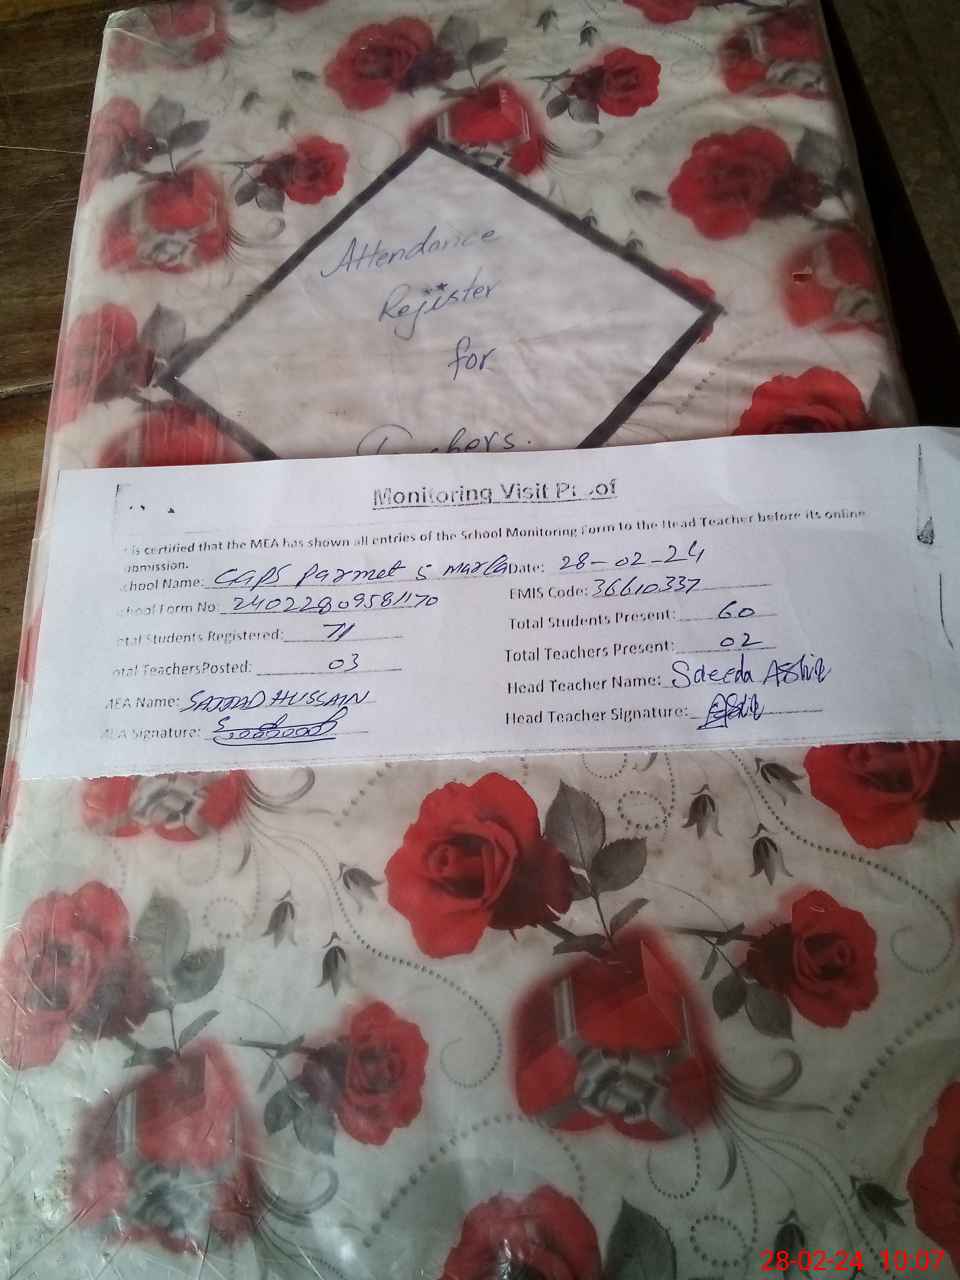 Attendance
Rejister
for
Teachers.
Monitoring Visit Proof
is certified that the MEA has shown all entries of the School Monitoring Form to the Head Teacher before its online
School Name: GGPS Parmet 5 Marla Date: 28-02-24
School Form No: 24022809581170 EMIS Code: 36610337
Total Students Registered: 71 Total Students Present: 60
Total TeachersPosted: 03 Total Teachers Present: 02
MEA Name: SAJJAD HUSSAIN Head Teacher Name: Saeeda Ashiq
MEA Signature: Head Teacher Signature:
28-02-24 10:07